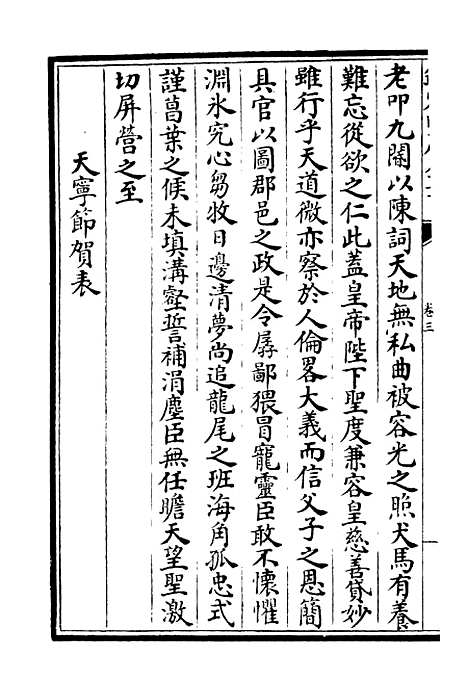 老叩九閽以陳詞天地無私曲被容光之照犬馬有養
難忘從欲之仁此蓋皇帝陛下聖度兼容皇慈善貸妙
雖行乎天道微亦察於人倫畧大義而信父子之恩簡
具官以圖郡邑之政是令孱鄙猥冒寵靈臣敢不懷懼
淵氷究心芻牧日邊清夢尚追龍尾之班海角孤忠式
謹葛葉之候未填溝壑誓補涓塵臣無任瞻天望聖激
切屏營之至
天寧節賀表
卷三
一